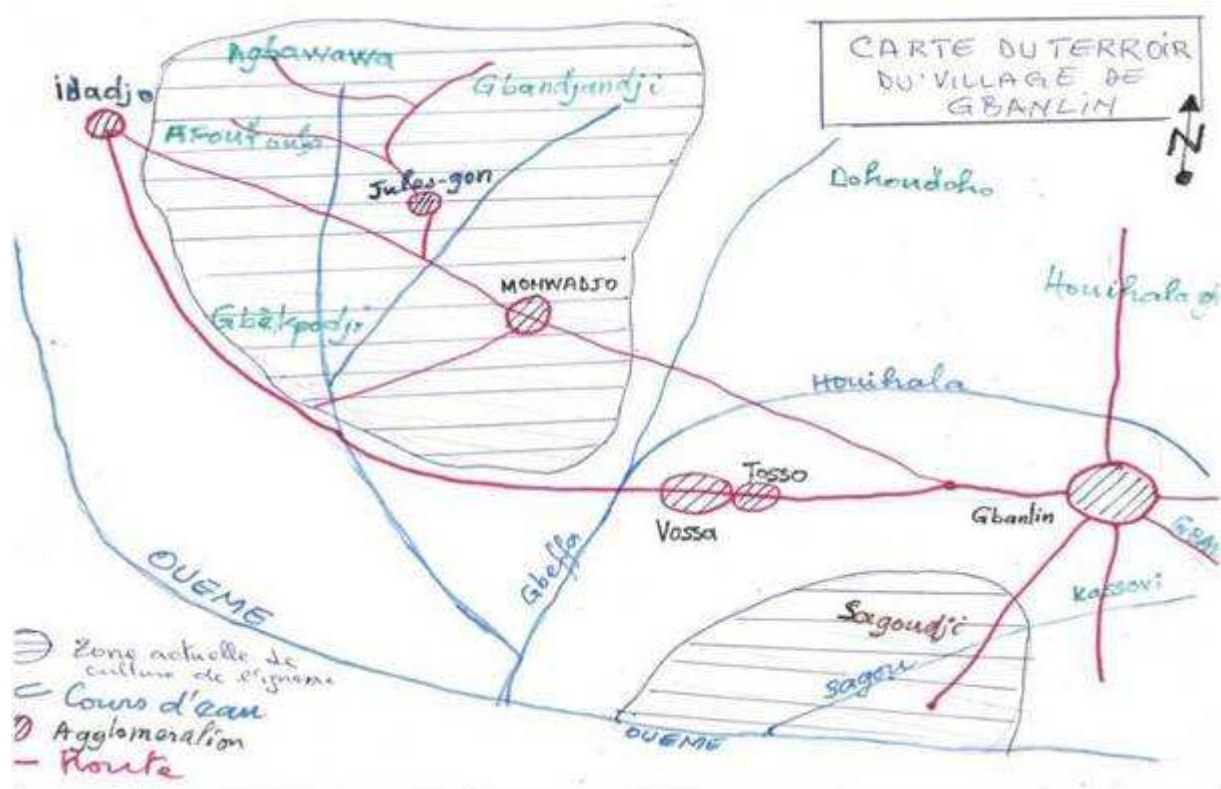 CARTE DU TERROIR
DU VILLAGE DE
GBANLIN
N
Agbawawa
Gbandjandji
idadjo
Jules-gon
Dohoudoho
MONWADJO
Gbèkpodji
Houihala
Tosso
Vossa
Gbanlin
OUEME
Gbeffa
Kassovi
Sagoudji
sagou
OUEME
Zone actuelle de
culture de l'igname
Cours d'eau
Agglomeration
Route